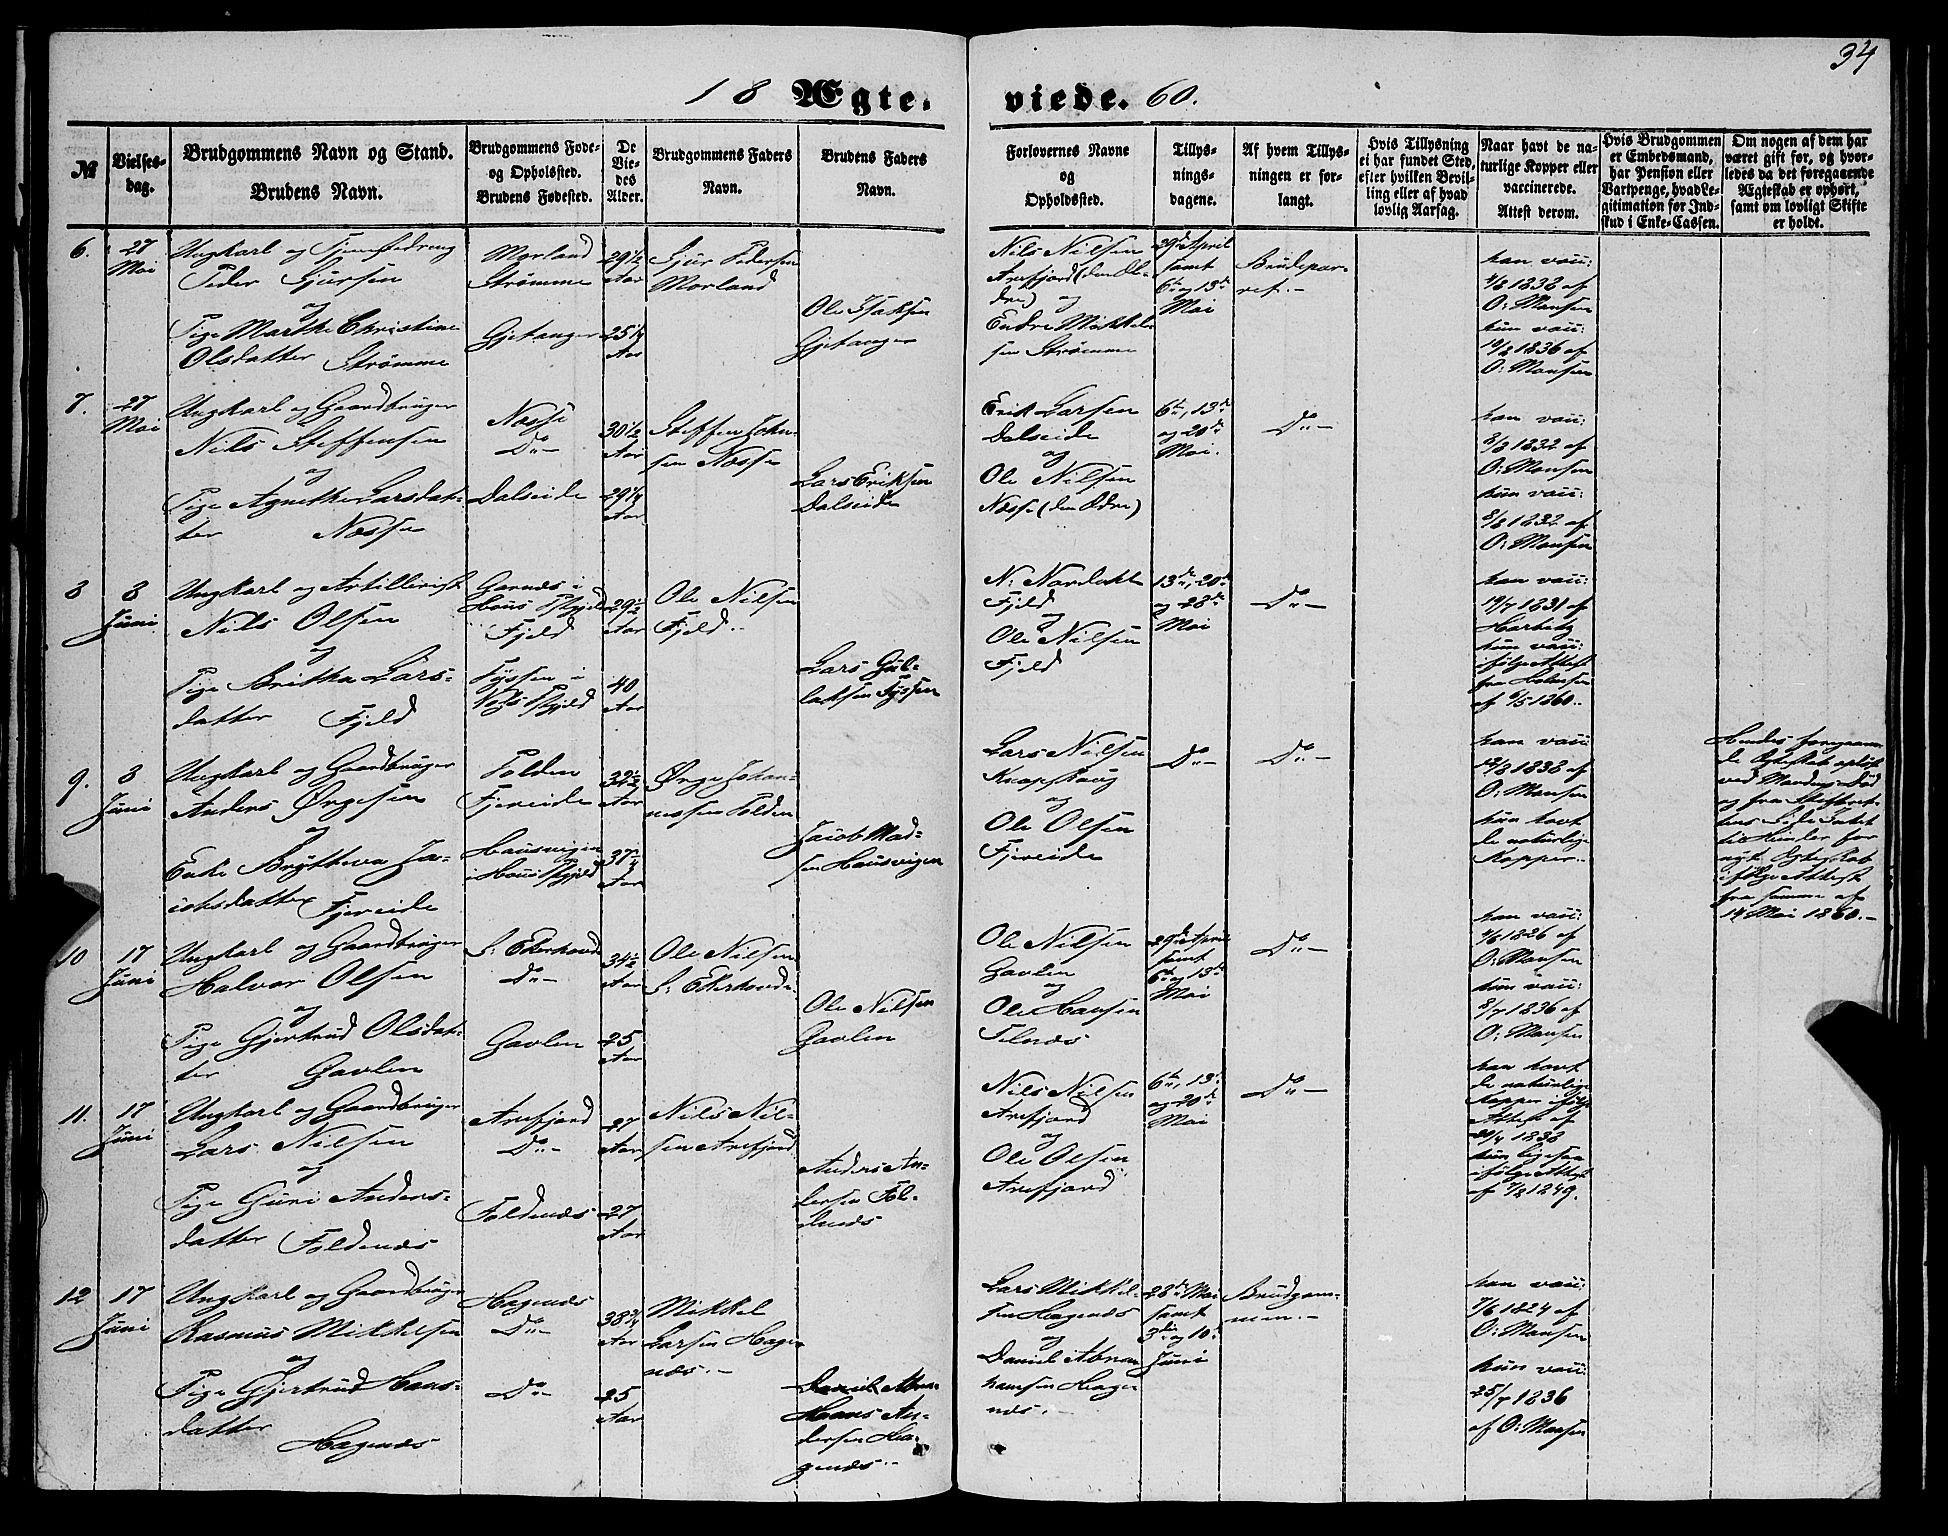 34
18 Ægte-
viede. 60.
№
Vielses-
dag.
Brudgommens Navn og Stand.
Brudens Navn.
Brudgommens Føde-
og Opholdssted.
Brudens Fødested.
De
Vie-
des
Alder.
Brudgommens Faders
Navn.
Brudens Faders
Navn.
Forlovernes Navne
og
Opholdssted.
Tillys-
nings-
dagene.
Af hvem Tillys-
ningen er for-
langt.
Hvis Tillysning
ei har fundet Sted,
efter hvilken Bevil-
ling eller af hvad
lovlig Aarsag.
Naar havt de na-
turlige Kopper eller
vaccinerede.
Attest derom.
Hvis Brudgommen
er Embedsmand,
har Pension eller
Vartpenge, hvad Le-
gitimation for Ind-
skud i Enke-Cassen.
Om nogen af dem har
været gift før, og hvor-
ledes da det foregaaende
Ægteskab er ophørt,
samt om lovligt Skifte
er holdt.
6.
27
Mai
Ungkarl og
Peder Gjursen
og
Pige Marthe Christine
Olsdatter Strømme
Morland
Strømme
Gjetanger
29½
Aar
25¼
Aar
Gjur Pedersen
Morland
Ole Isaksen
Gjetanger
Nils Nilsen
Arefjord (den Æl-
dre)
og
Endre Mikkel-
sen Strømme
29de April
samt
6te og 13de
Mai
Brudepar-
ret.-
han vacc:
1838 af
O: Monsen
hun vacc:
19/8 1836 af
O: Monsen
7.
27
Mai
Ungkarl og Gaardbruger
Nils Steffensen
og
Pige Agnethe Larsdat-
ter Næsse
Næsse
Do -
Dalseide
30½
Aar
29¼
Aar
Steffen John-
sen Næsse
Lars Eriksen
Dalseide
Erik Larsen
Dalseide
og
Ole Nilsen
Næsse (den Ædre)
6te, 13de
og 20de
Mai.
Do -
han vacc:
8/8 1832 af
O: Monsen
hun vacc:
8/8 1832 af
O: Monsen
8
8
Juni
Ungkarl og Artillerist
Nils Olsen
og
Pige Britha Lars-
datter Fjeld
Garnæs i
Haus Pgjeld
Fjeld
Tyssen i
Pgjeld
29½
Aar
40
Aar
Ole Nilsen
Fjeld.-
Lars Gul-
laksen Tyssen
N: Nordahl
Fjeld
og
Ole Nilsen
Fjeld
13de, 20de
og 28de
Mai
Do -
han vacc:
19/7 1831 af
Harbitz
hun vacc:
ifølge Attest
fra
af 9/5 1860.
9.
8
Juni
Ungkarl og Gaardbruger
Anders Ørgesen
og
Enke Brytheva Ja-
cobsdatter Fjereide
Polden
Fjereide
Hausvigen
i Haus Pgjeld
32½
Aar
37¼
Aar
Ørge Johan-
nessen Polden
Jacob Mad-
sen Hausvigen
Lars Nilsen
Knapskaug
og
Ole Olsen
Fjereide
Do -
Do -
han vacc:
1838 af
O: Monsen
hun havt
de naturlige
Kopper.-
Hendes foregaaen-
de Ægteskab opløst
ved Mandens Død
og fra Skifteret-
tens Side Intet
til Hinder for
nyt Ægteskab
ifølge Attest
fra samme af
14 Mai 1860.-
10
17
Juni
Ungkarl og Gaardbruger
Halvor Olsen
og
Pige Gjertrud Olsdat-
ter Gavlen
S: Ekerhovde
Do -
Gavlen
34½
Aar
25
Aar
Ole Nilsen
S: Ekerhovde
Ole Nilsen
Gavlen
Ole Nilsen
Gavlen
og
Ole Hansen
Telnæs
29de April
samt
6te og 13de
Mai
Do -
han vacc:
1826 af
O: Monsen
hun vacc:
8/7 1836 af
O: Monsen
11.
17
Juni
Ungkarl og Gaardbruger
Lars Nilsen
og
Pige Guri Anders-
datter Foldnæs
Arefjord
Do -
Foldnæs
27
Aar
27
Aar
Nils Nil-
sen Arefjord
Anders An-
dersen Fol-
dnæs
Nils Nilsen
Arefjord
og
Ole Olsen
Arefjord
6te, 13de
og 20de
Mai
Do -
han havt
de naturlige
Kopper ifølge
Attest af
1838
hun ligesaa
ifølge Attest
af 7/8 1849.
12
17
Juni
Ungkarl og Gaardbruger
Rasmus Mikkelsen
og
Pige Gjertrud Hans-
datter
Hagenæs
Hagenæs
Do -
Do -
38¾
Aar
25
Aar
Mikkel
Larsen Hage-
næs.-
Daniel Abra-
Haans An-
dersen Ha-
genæs.-
Lars Mikkel-
sen Hagenæs
og
Daniel Abra-
hamsen Hage-
næs.-
28de Mai
samt
3die og 10de
Juni
Brudgom-
men.-
han vacc:
7/6 1824 af
O: Monsen
hun vacc:
25/7 1836
af O: Monsen